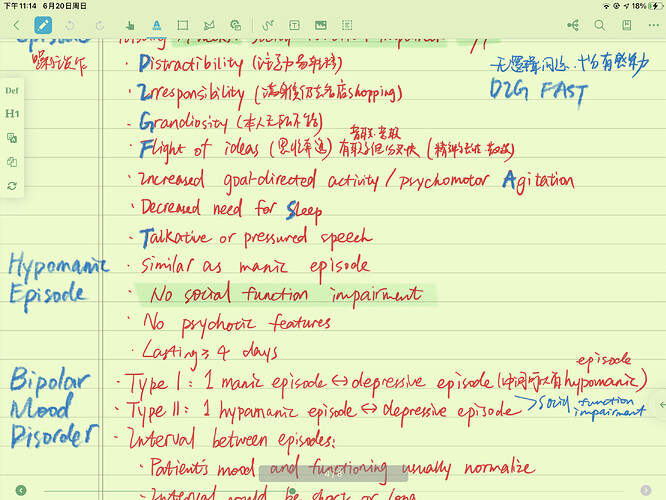 下午11:14 6月20日周日
18%
躁狂发作
无逻辑问题.十分有感染力
DIG FAST
· Distractibility (注意力易转移)
· Irresponsibility (满身债仍去名店shopping)
· Grandiosity (本人无所不能)
· Flight of ideas (思维奔逸)
· Increased goal-directed activity / psychomotor Agitation
· Decreased need for Sleep
· Talkative or pressured speech
Hypomanic Episode
· Similar as manic episode
· No social function impairment
· No psychotic features
· Lasting ≥ 4 days
Bipolar Mood Disorder
· Type I : 1 manic episode ↔ depressive episode (中间可以有hypomanic episode)
· Type II : 1 hypamanic episode ↔ depressive episode → social function impairment
· Interval between episodes:
· Patient's mood and functioning usually normalize
· Interval could be short or long
Def
H1